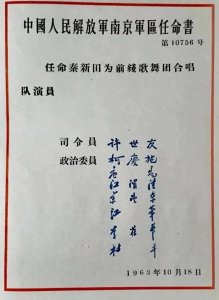 中國人民解放軍南京軍區任命書
第10756号
任命秦新田为前綫歌舞团合唱
队演員
司令員
許世友
政治委員
柯慶施
江渭清
1963年10月18日